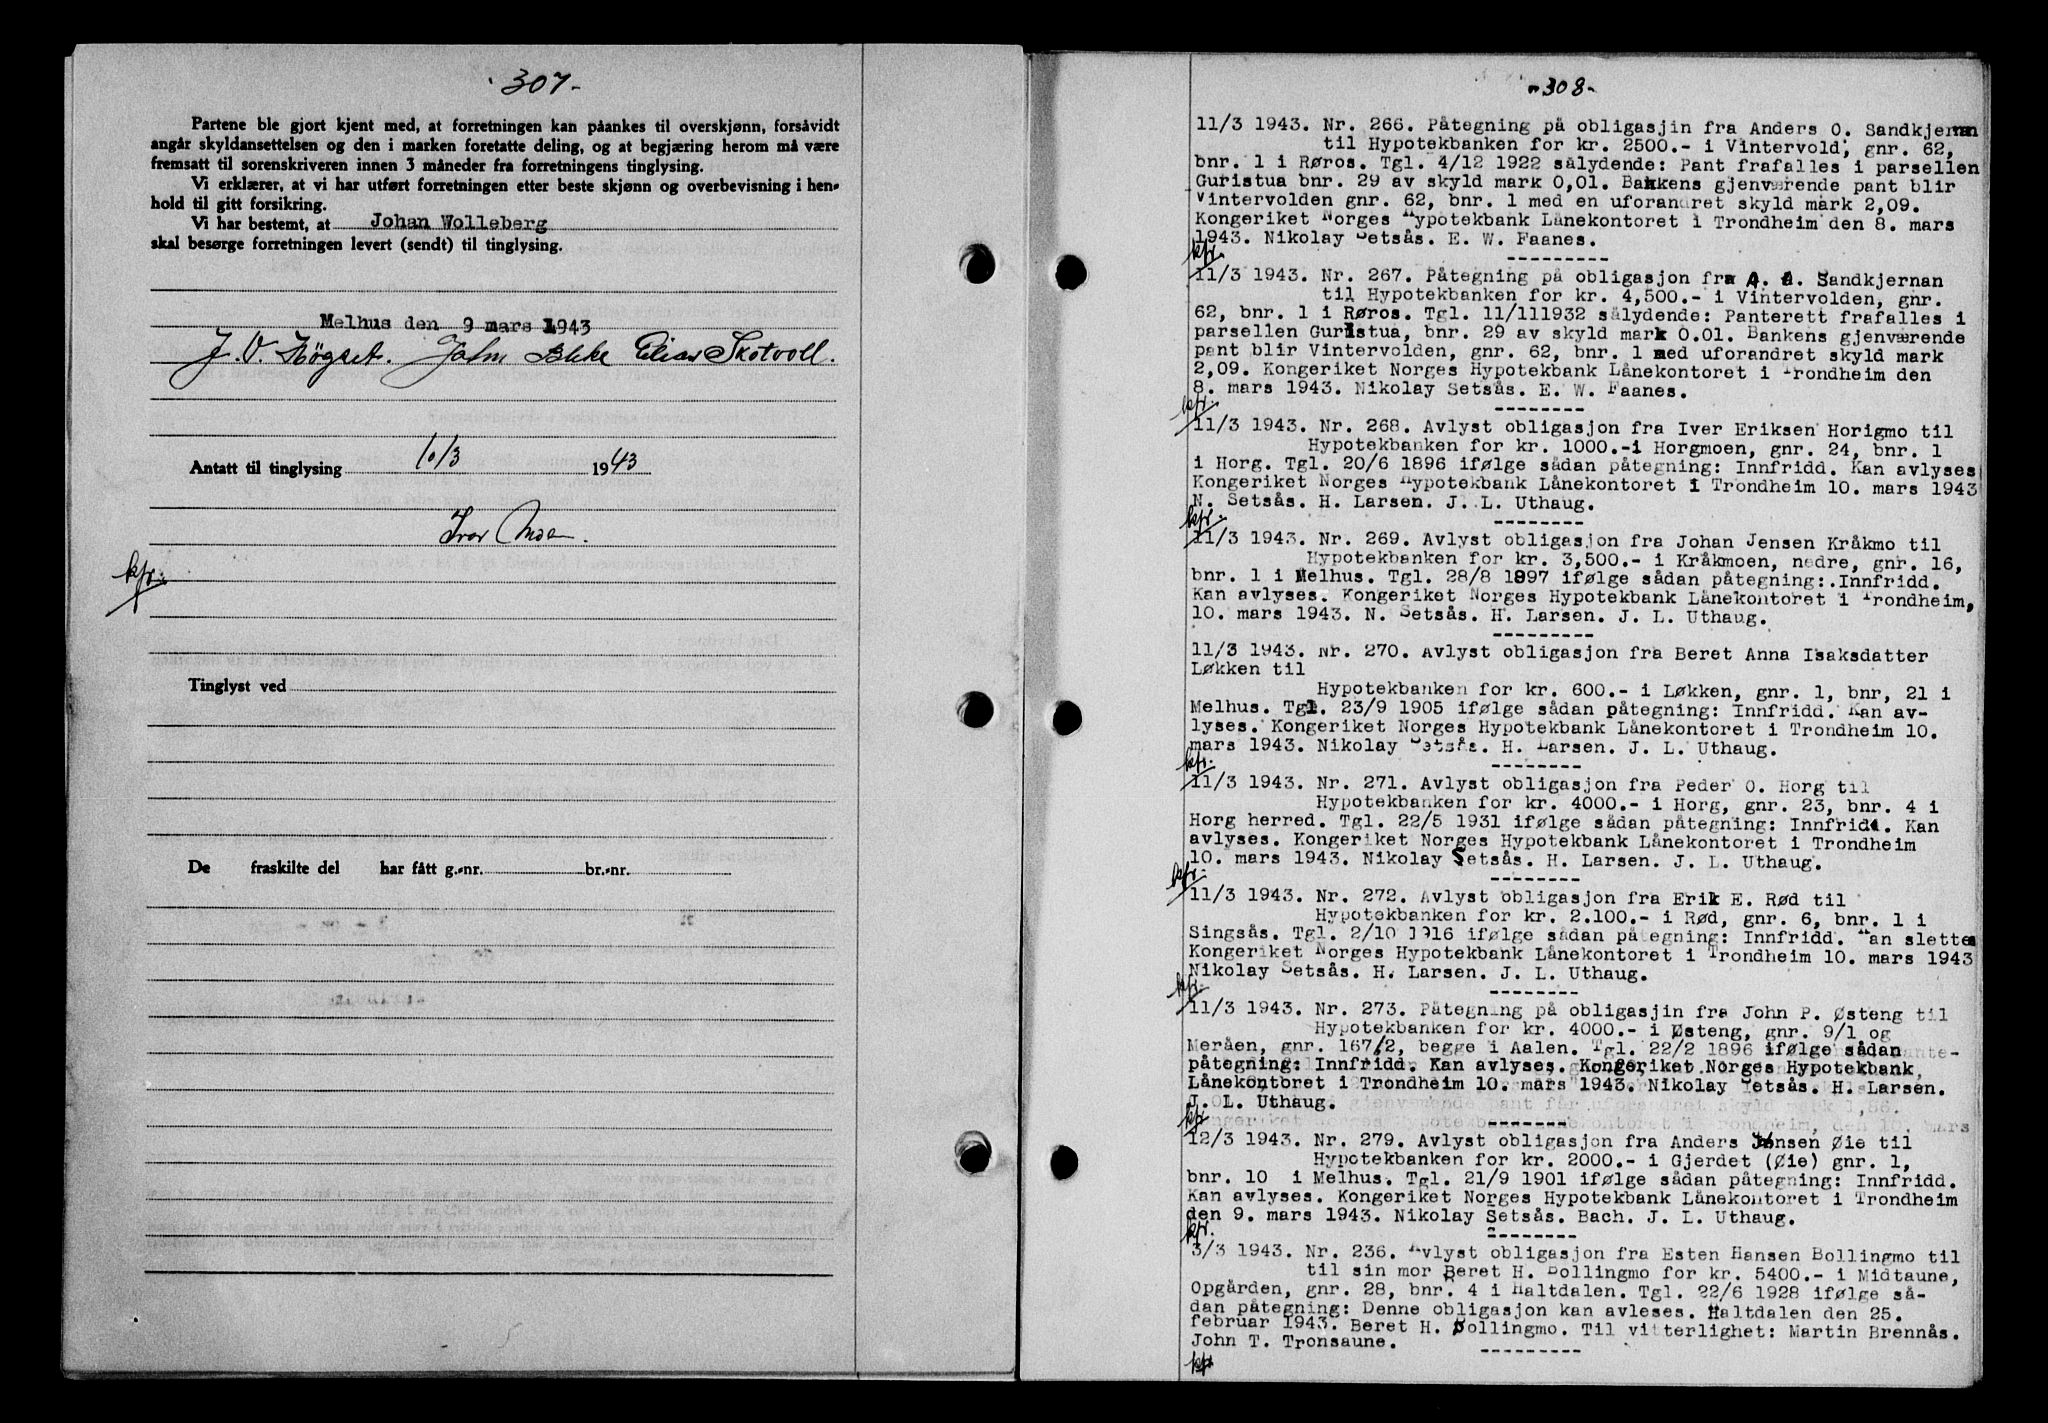 307-
Partene ble gjort kjent med, at forretningen kan påankes til overskjønn, forsåvidt
angår skyldansettelsen og den i marken foretatte deling, og at begjæring herom må være
fremsatt til sorenskriveren innen 3 måneder fra forretningens tinglysing.
Vi erklærer, at vi har utført forretningen etter beste skjønn og overbevisning i hen-
hold til gitt forsikring.
Vi har bestemt, at Johan Wolleberg
skal besørge forretningen levert (sendt) til tinglysing.
Melhus den 9 mars 1943
J. O. Høgset. John Bleke Elias Skotvoll.
Antatt til tinglysing 10/3 1943
Ivar Moen.
kfr.
Tinglyst ved
De fraskilte del har fått g.-nr. br.-nr.
308-
11/3 1943. Nr. 266. Påtegning på obligasjin fra Anders O. Sandkjernan
til Hypotekbanken for kr. 2500.- i Vintervold, gnr. 62,
bnr. 1 i Røros. Tgl. 4/12 1922 sålydende: Pant frafalles i parsellen
Guristua bnr. 29 av skyld mark 0,01. Bankens gjenværende pant blir
Vintervolden gnr. 62, bnr. 1 med en uforandret skyld mark 2,09.
Kongeriket Norges Hypotekbank Lånekontoret i Trondheim den 8. mars
1943. Nikolay Setsås. E. W. Faanes.
kfr.
11/3 1943. Nr. 267. Påtegning på obligasjon fra A. O. Sandkjernan
til Hypotekbanken for kr. 4,500.- i Vintervolden, gnr.
62, bnr. 1 i Røros. Tgl. 11/111932 sålydende: Panterett frafalles i
parsellen Guristua, bnr. 29 av skyld mark 0.01. Bankens gjenværende
pant blir Vintervolden, gnr. 62, bnr. 1 med uforandret skyld mark
2,09. Kongeriket Norges Hypotekbank Lånekontoret i Trondheim den
8. mars 1943. Nikolay Setsås. E. W. Faanes.
kfr.
11/3 1943. Nr. 268. Avlyst obligasjon fra Iver Eriksen Horigmo til
Hypotekbanken for kr. 1000.-i Horgmoen, gnr. 24, bnr. 1
i Horg. Tgl. 20/6 1896 ifølge sådan påtegning: Innfridd. Kan avlyses
Kongeriket Norges Hypotekbank Lånekontoret i Trondheim 10. mars 1943
N. Setsås. H. Larsen. J. L. Uthaug.
kfr.
11/3 1943. Nr. 269. Avlyst obligasjon fra Johan Jensen Kråkmo til
Hypotekbanken for kr. 3,500.- i Kråkmoen, nedre, gnr. 16,
bnr. 1 i Melhus. Tgl. 28/8 1897 ifølge sådan påtegning:.Innfridd.
Kan avlyses. Kongeriket Norges Hypotekbank Lånekontoret i Trondheim,
10. mars 1943. N. Setsås. H. Larsen. J. L. Uthaug.
11/3 1943. Nr. 270. Avlyst obligasjon fra Beret Anna Isaksdatter
Løkken til
Hypotekbanken for kr. 600.- i Løkken, gnr. 1, bnr, 21 i
Melhus. Tgl. 23/9 1905 ifølge sådan påtegning: Innfridd. Kan av-
lyses. Kongeriket Norges Hypotekbank Lånekontoret i Trondheim 10.
mars 1943. Nikolay Setsås. H. Larsen. J. L. Uthaug.
kfr.
11/3 1943. Nr. 271. Avlyst obligasjon fra Peder O. Horg til
Hypotekbanken for kr. 4000.- i Horg, gnr. 23, bnr. 4 i
Horg herred. Tgl. 22/5 1931 ifølge sådan påtegning: Innfridd. Kan
avlyses. Kongeriket Norges Hypotekbank Lånekontoret i Trondheim
10. mars 1943. Nikolay Setsås. H. Larsen. J. L. Uthaug.
kfr.
11/3 1943. Nr. 272. Avlyst obligasjon fra Erik E. Rød til
Hypotekbanken for kr. 2.100.- i Rød, gnr. 6, bnr. 1 i
Singsås. Tgl. 2/10 1916 ifølge sådan påtegning: Innfridd. Kan slettes
Kongeriket Norges Hypotekbank Lånekontoret i Trondheim 10. mars 1943
Nikolay Setsås. H. Larsen. J. L. Uthaug.
kfr.
11/3 1943. Nr. 273. Påtegning på obligasjin fra John P. Østeng til
Hypotekbanken for kr. 4000.- i Østeng, gnr. 9/1 og
Meråen, gnr. 167/2, begge i Aalen. Tgl. 22/2 1896 ifølge sådan
påtegning: Innfridd. Kan avlyses. Kongeriket Norges Hypotekbank
Lånekontoret i Trondheim 10. mars 1943. Nikolay Setsås. H. Larsen.
J. L. Uthaug.
kfr.
12/3 1943. Nr. 279. Avlyst obligasjon fra Anders Jensen Øie til
Hypotekbanken for kr. 2000.- i Gjerdet (Øie) gnr. 1,
bnr. 10 i Melhus. Tgl. 21/9 1901 ifølge sådan påtegning: Innfridd.
Kan avlyses. Kongeriket Norges Hypotekbank Lånekontoret i Trondheim
den 9. mars 1943. Nikolay Setsås. Bach. J. L. Uthaug.
kfr.
3/3 1943. Nr. 236. Avlyst obligasjon fra Esten Hansen Bollingmo til
til sin mor Beret H. Bollingmo for kr. 5400.- i Midtaune,
Opgården, gnr. 28, bnr. 4 i Haltdalen. Tgl. 22/6 1928 ifølge så-
dan påtegning: Denne obligasjon kan avleses. Haltdalen den 25.
februar 1943. Beret H. Bollingmo. Til vitterlighet: Martin Brennås.
John T. Tronsaune.
kfr